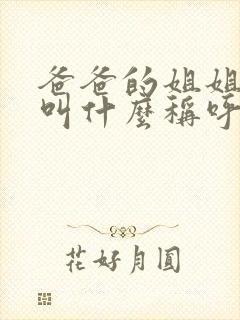 爸爸的姐姐
叫什麼稱呼
花好月圓